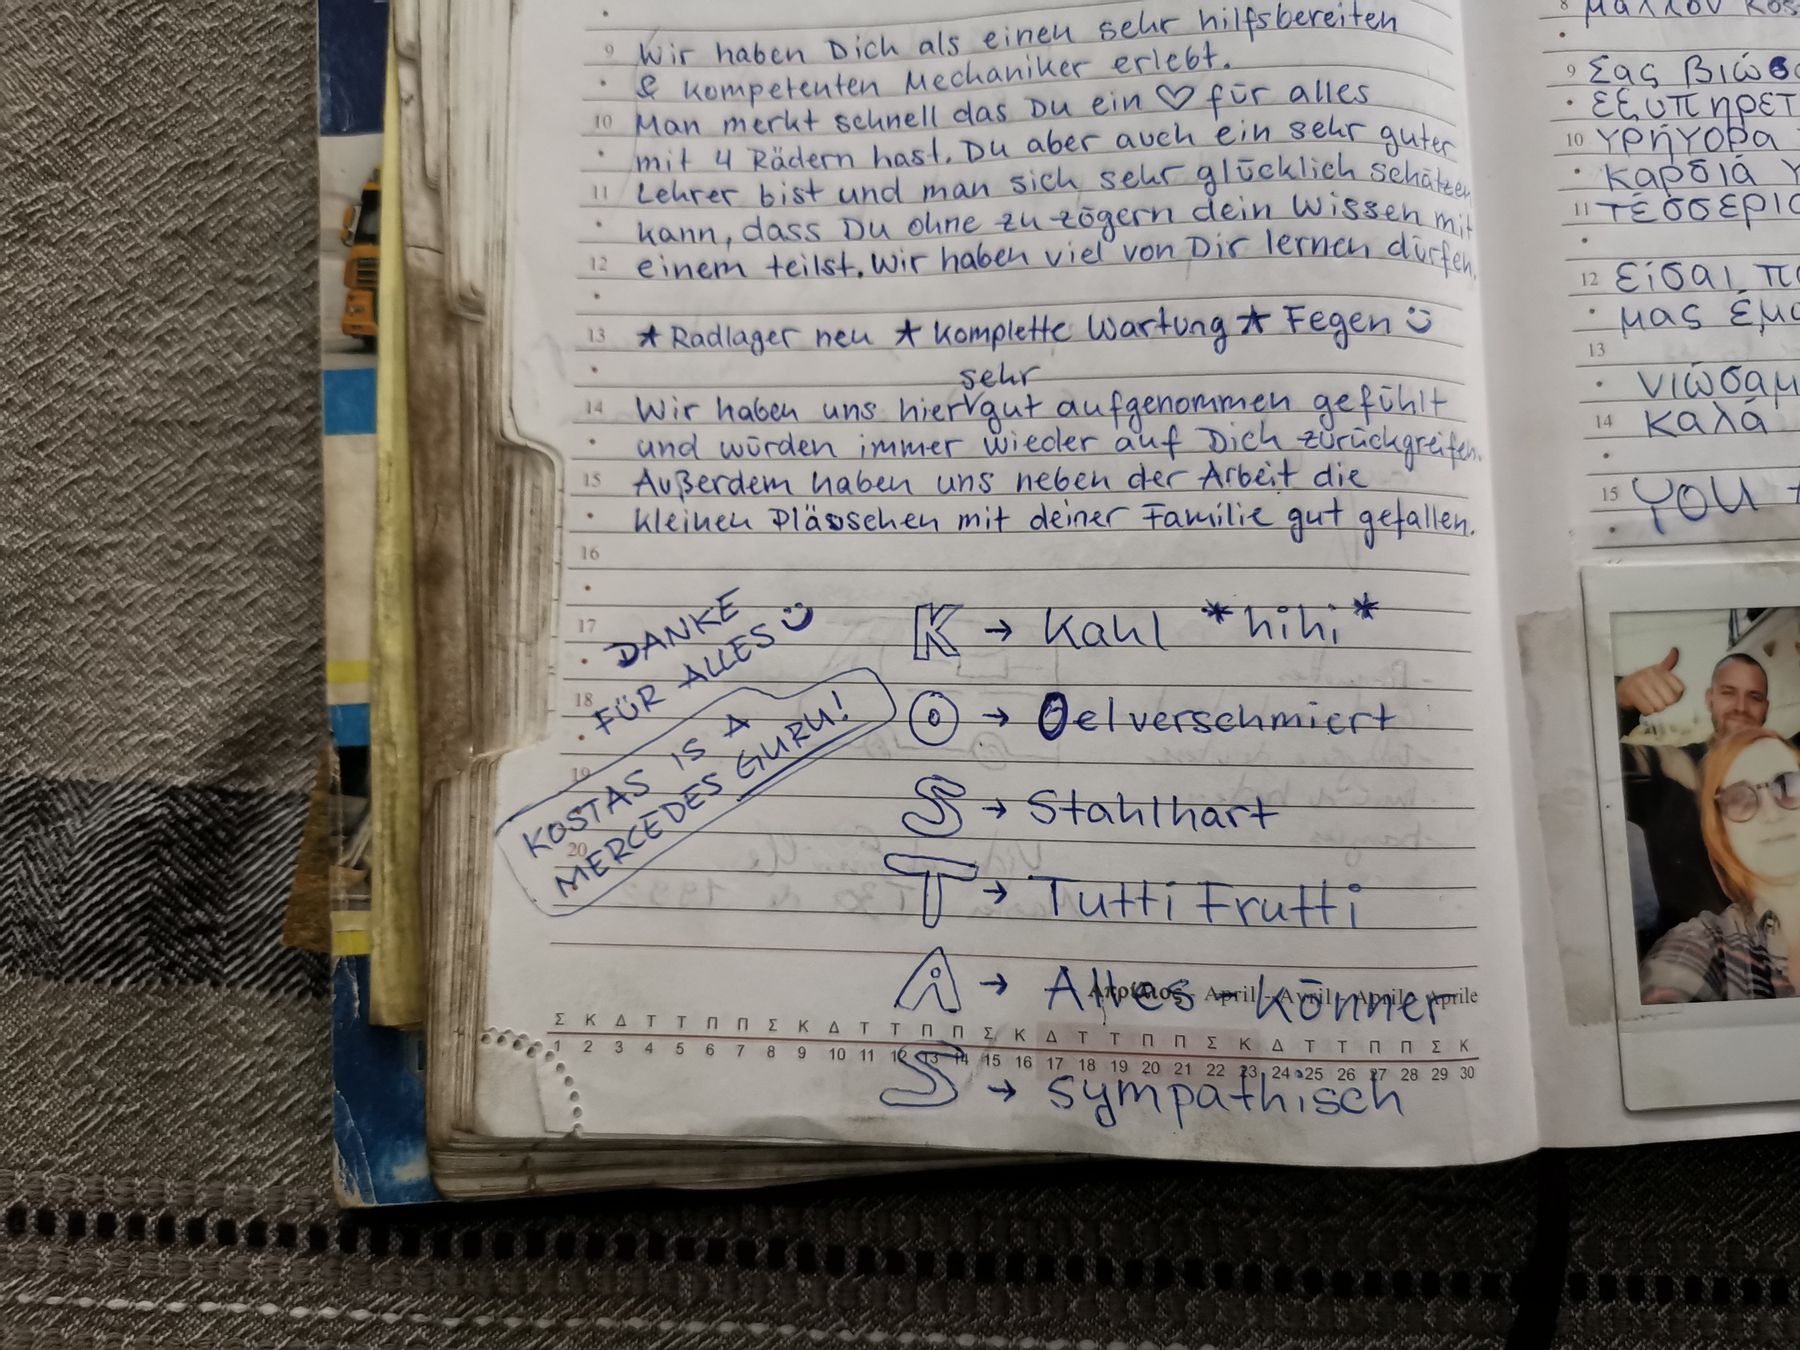 Wir haben Dich als einen sehr hilfsbereiten
& kompetenten Mechaniker erlebt.
Man merkt schnell das Du ein ♡ für alles
mit 4 Rädern hast. Du aber auch ein sehr guter
Lehrer bist und man sich sehr glücklich schätzen
kann, dass Du ohne zu zögern dein Wissen mit
einem teilst. Wir haben viel von Dir lernen dürfen.
* Radlager neu * Komplette Wartung * Fegen ☺
sehr
Wir haben uns hier gut aufgenommen gefühlt
und würden immer wieder auf Dich zurückgreifen.
Außerdem haben uns neben der Arbeit die
kleinen Pläuschchen mit deiner Familie gut gefallen.
DANKE
FÜR ALLES ☺
KOSTAS IS A
MERCEDES GURU!
K → Kahl *hihi*
O → Oelverschmiert
S → Stahlhart
T → Tutti Frutti
A → Alles-könner
S → sympathisch
Απρίλιος - April - Avril - Aprile - Aprile
Σ Κ Δ Τ Τ Π Π Σ Κ Δ Τ Τ Π Π Σ Κ Δ Τ Τ Π Π Σ Κ Δ Τ Τ Π Π Σ Κ
1 2 3 4 5 6 7 8 9 10 11 12 13 14 15 16 17 18 19 20 21 22 23 24 25 26 27 28 29 30
9
10
11
12
13
14
15
16
17
18
19
20
8 μάλλον
9 Σας
10 γρήγορα
καρδιά
11
12 είσαι
μας
13
νιώσαμ
14 καλά
15 YOU